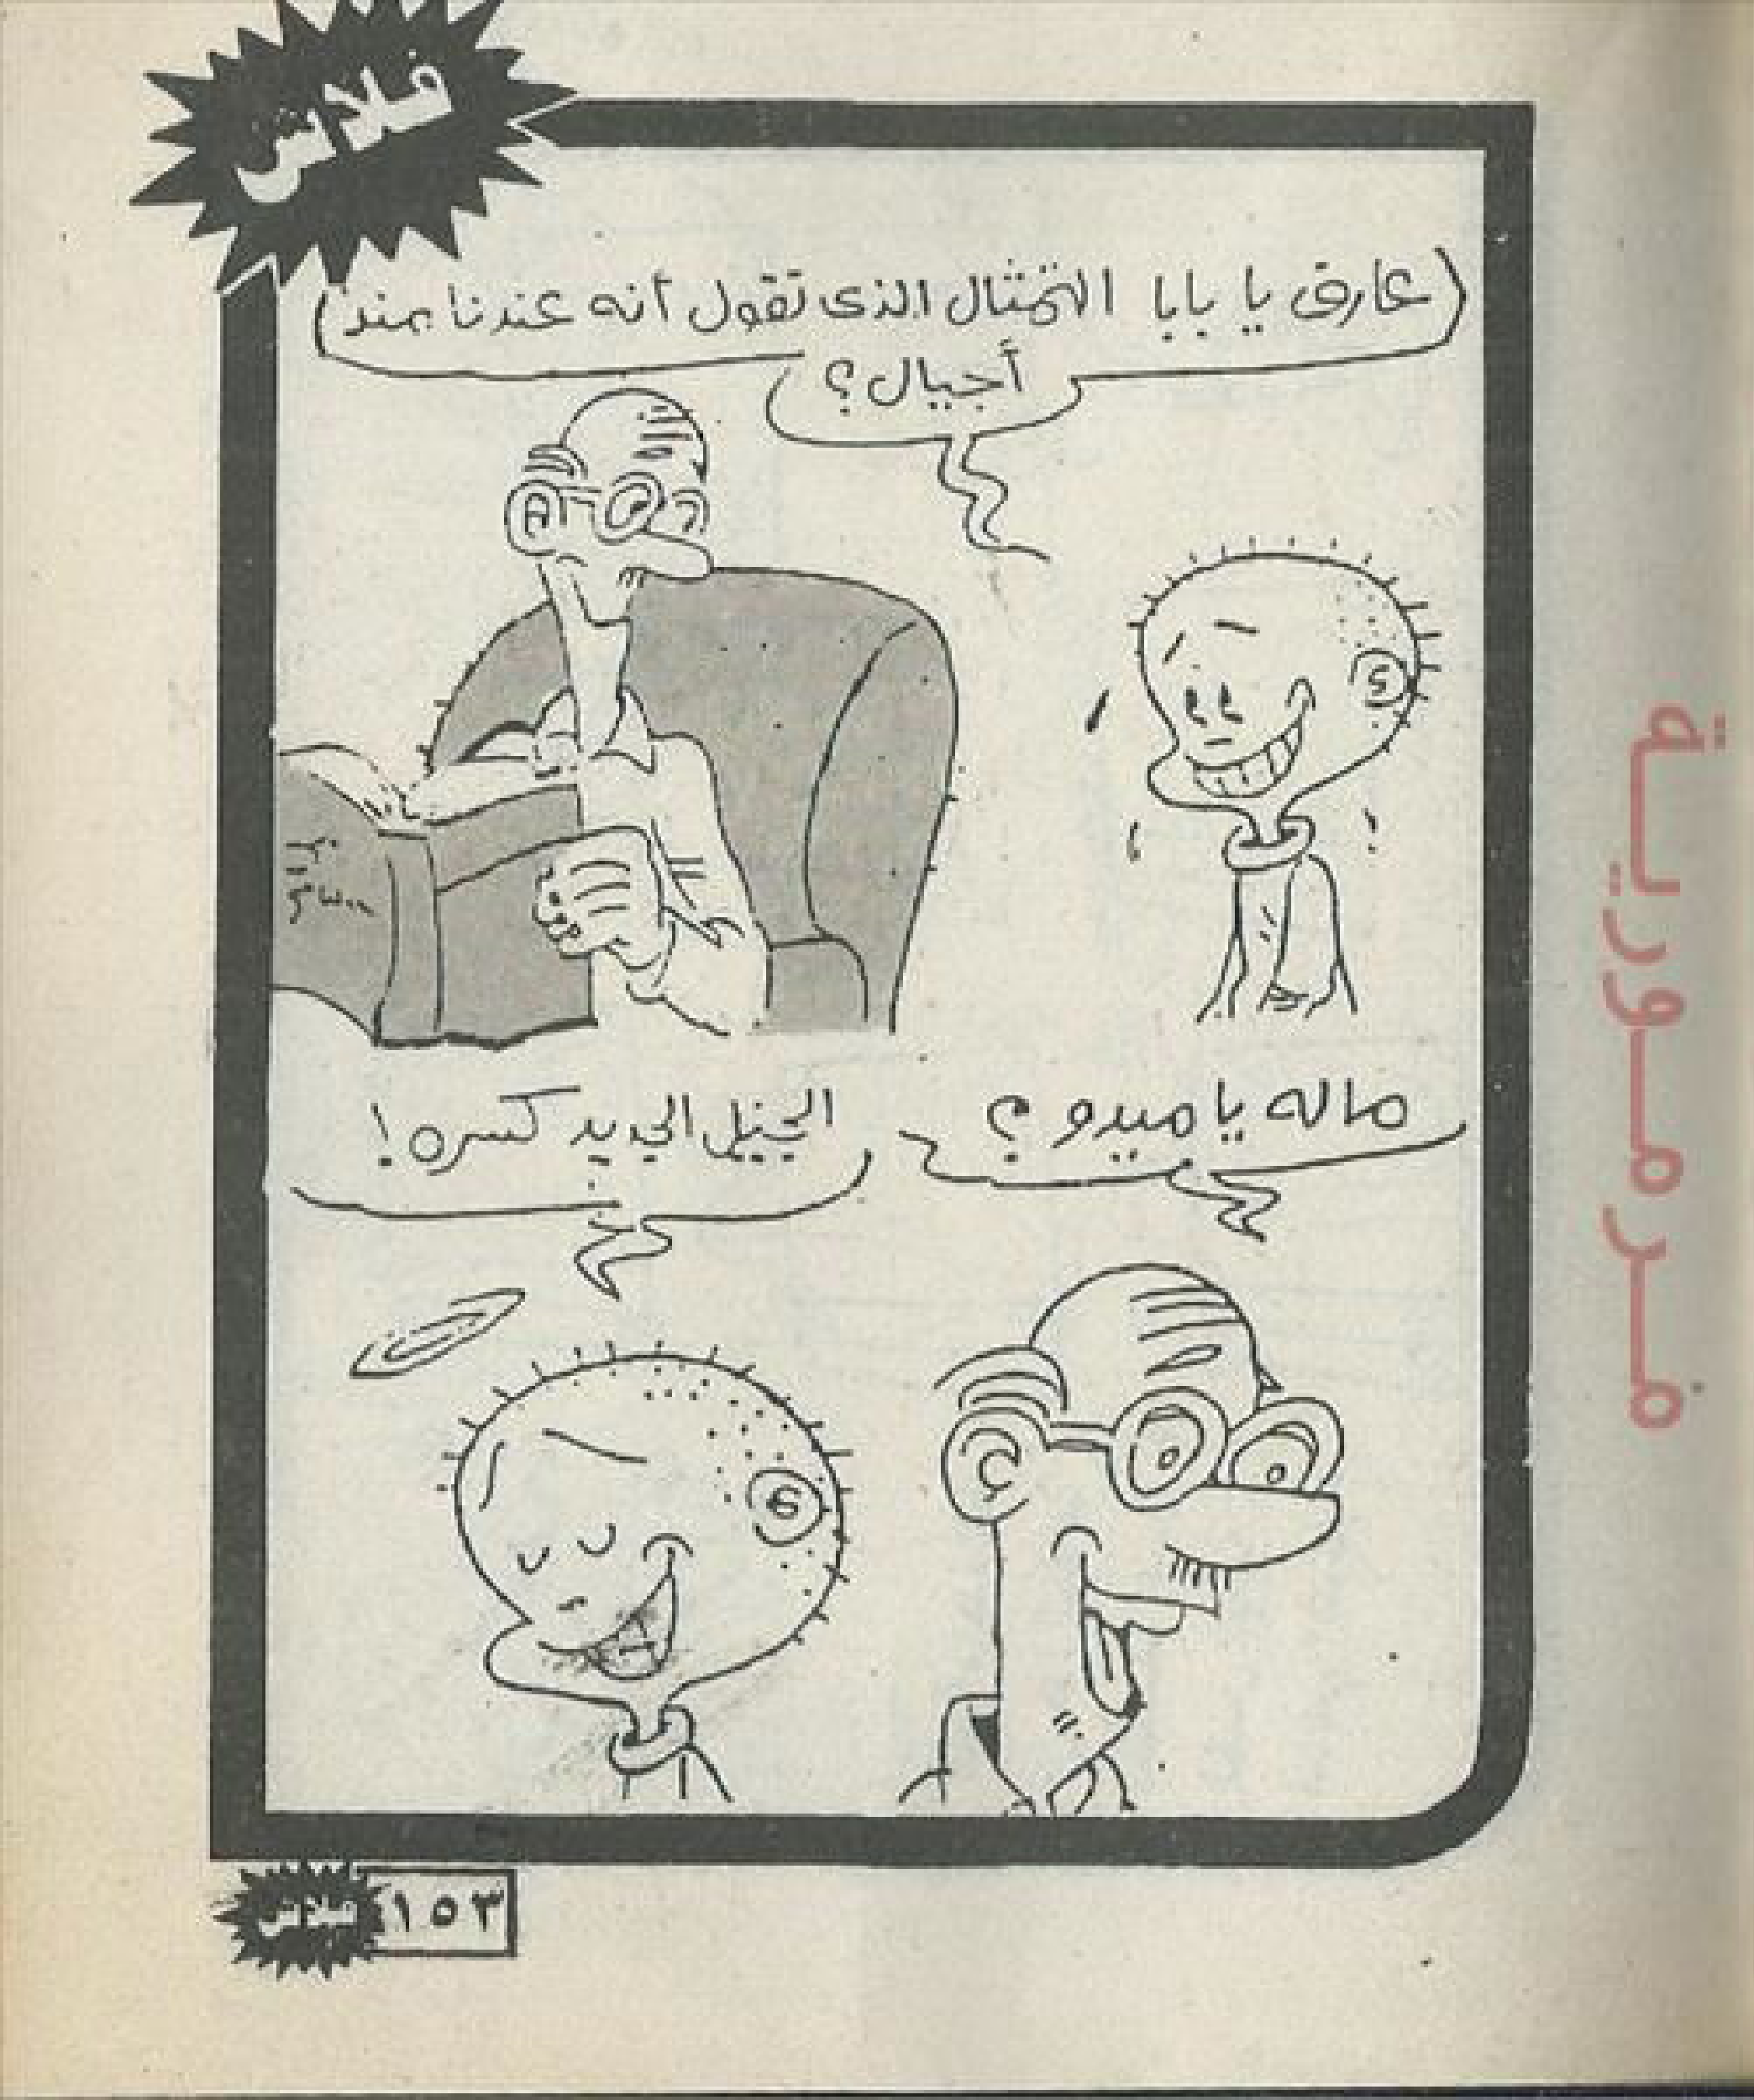 فلاش
عارف يا بابا التمثال الذى تقول أنه عندنا منذ
أجيال؟
ماله يا ميدو؟
الجيل الجديد كسره!
فلاش ١٥٣
مرمورية